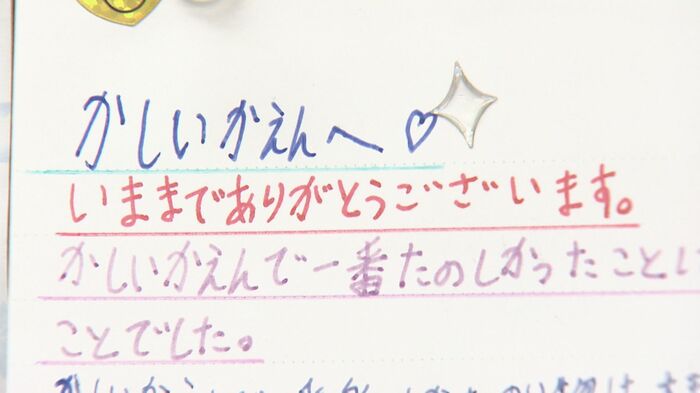 かしいかえんへ♡
いままでありがとうございます。
かしいかえんで一番たのしかったことは
ことでした。